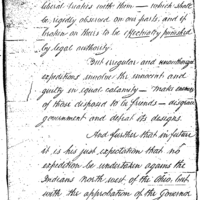 liberal traders with them — which shall
be rigidly observed on our part, and if
broken on theirs to be effectually punished
by legal authority.
But irregular and unauthorized
expeditions involve the innocent and
guilty in equal calamity — make enemies
of those disposed to be friends — disgrace
government and defeat its designs.
And further that in future
it is his just expectation that no
expedition be undertaken against the
Indians north west of the Ohio, but
with the approbation of the Governor